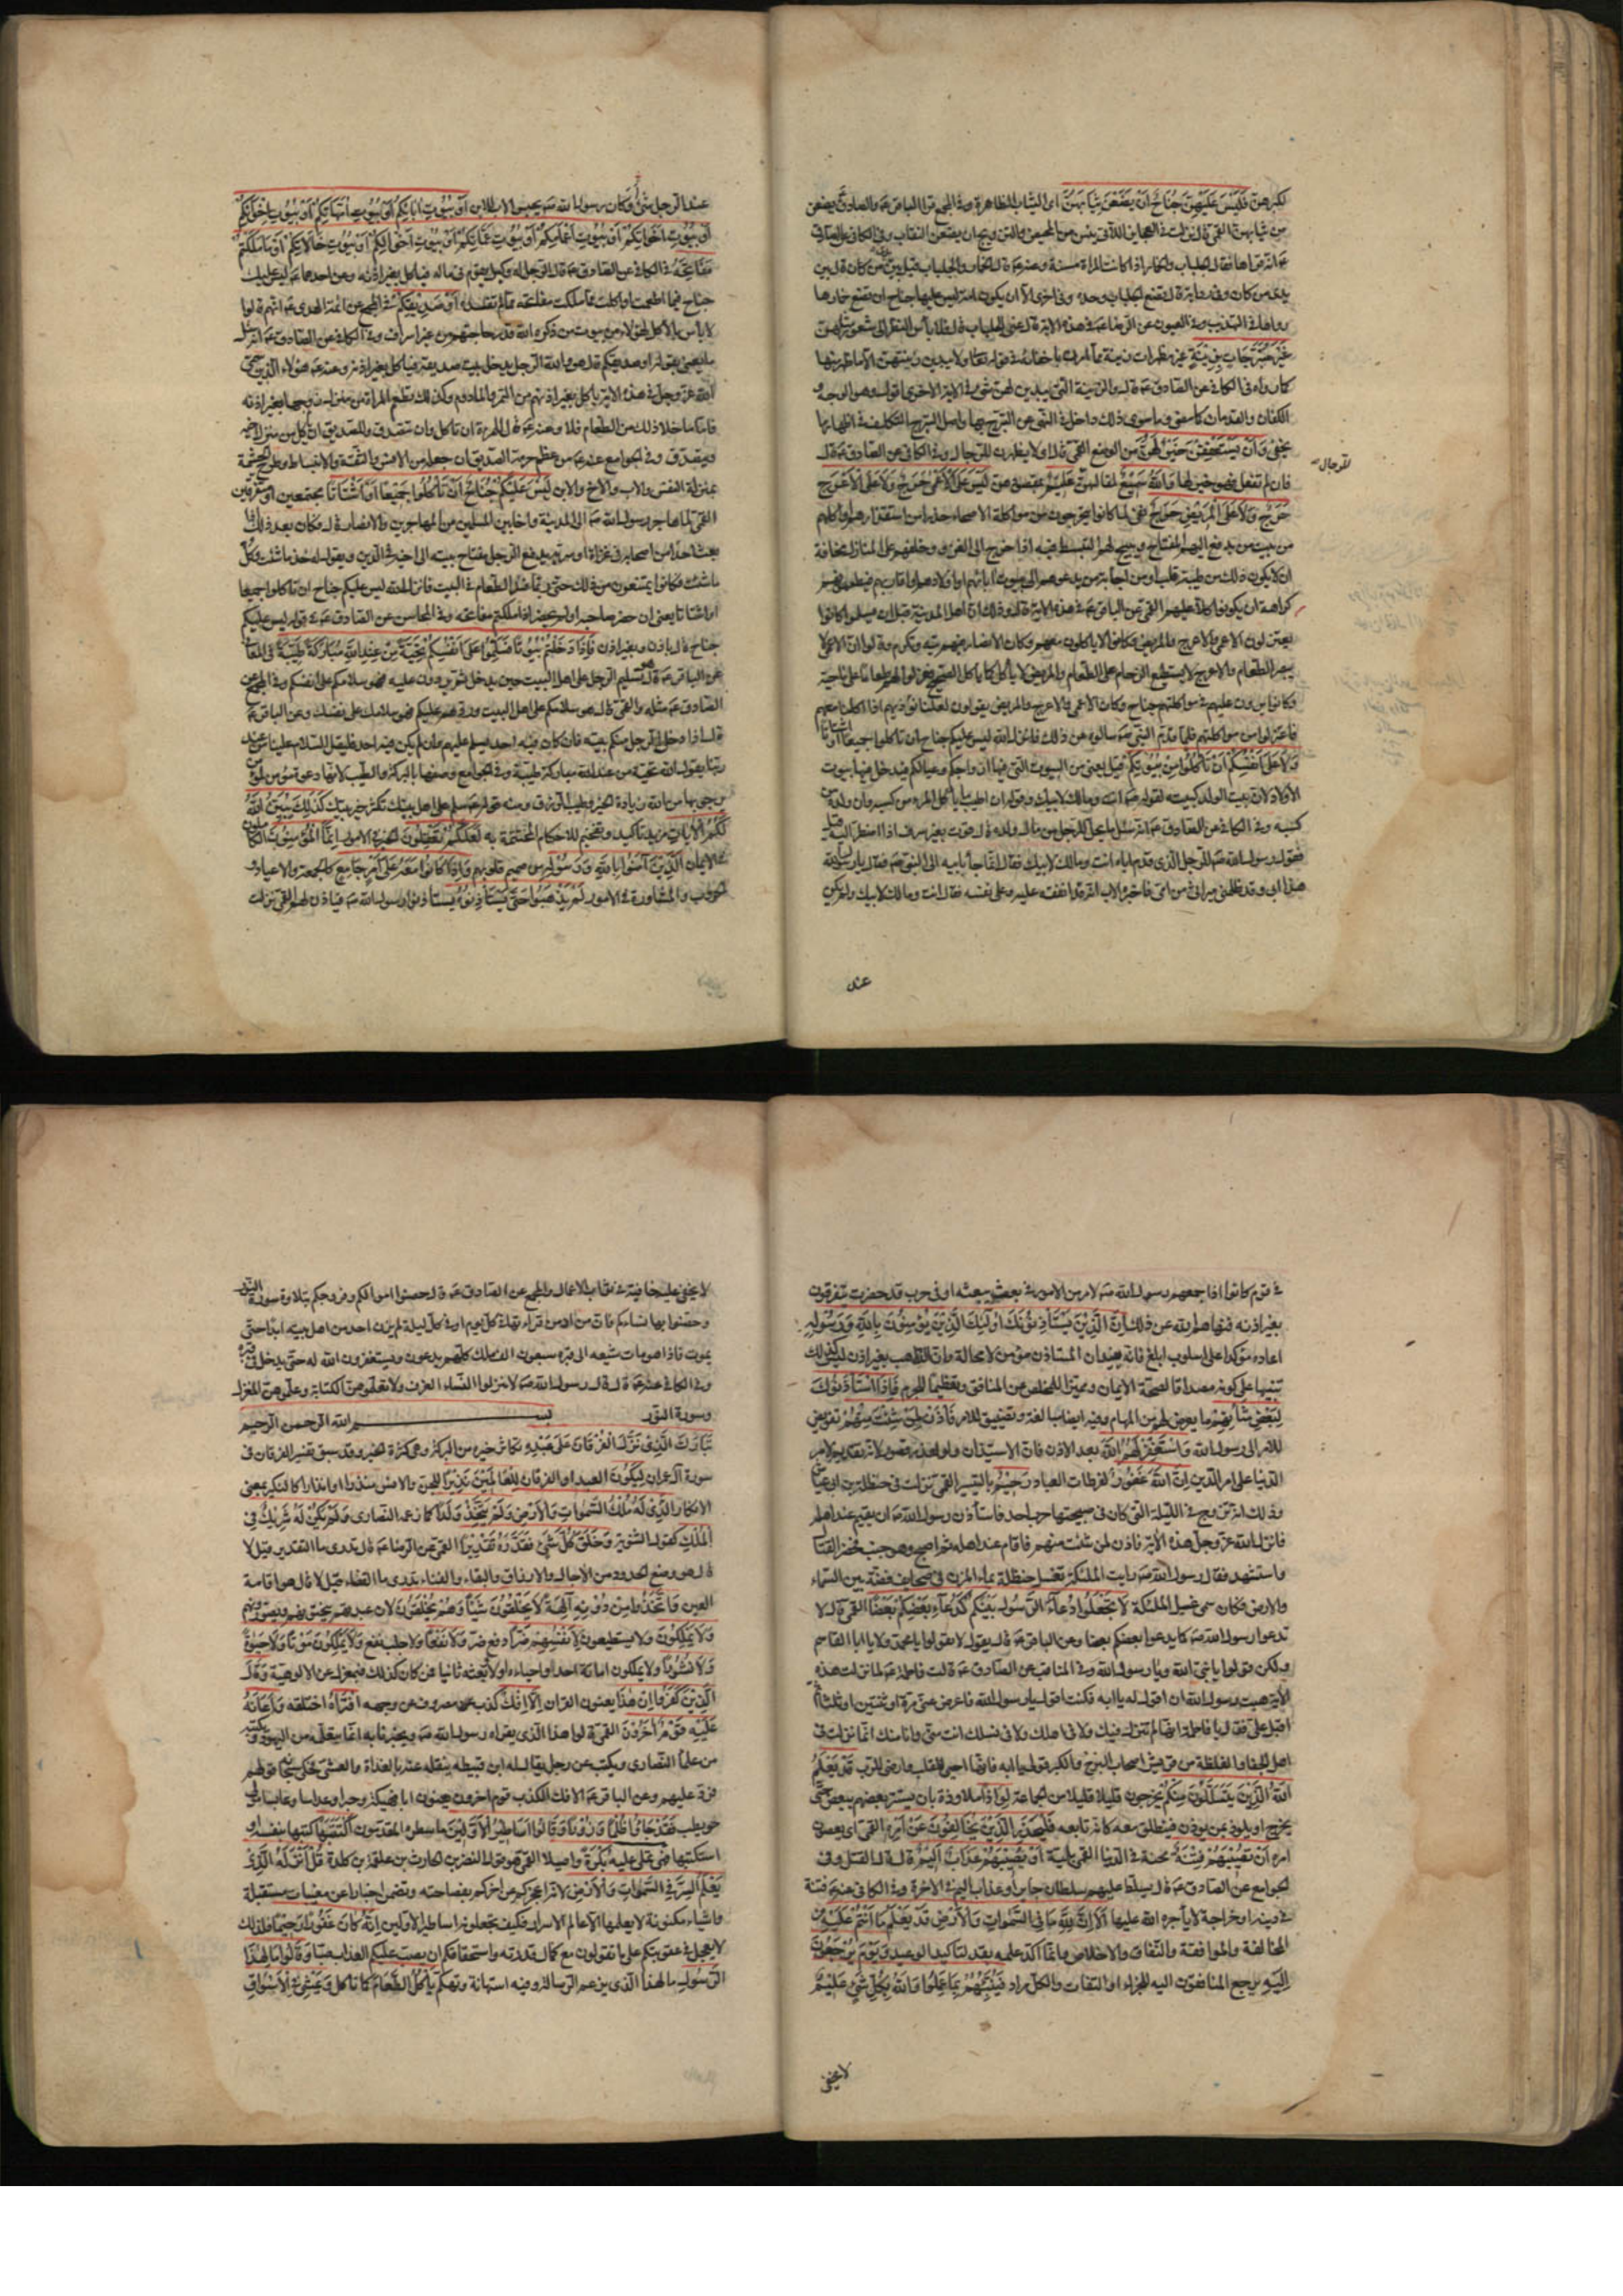 لكبرهن فَلَيْسَ عَلَيْهِنَّ جُنَاحٌ اَنْ يَضَعْنَ ثِيَابَهُنَّ اى الثياب الظاهرة وفى المجمع قرا الباقر والصادق يضعن
من ثيابهن القمى قال نزلت فى العجايز اللاتى يئسن من المحيض والتزويج ان يضعن النقاب وفى الكافى عن الصادق
انه قراها فقال الجلباب والخمار اذا كانت المراة مسنة وعنه قال الخمار والجلباب قيل بين يدى من كان قال بين
يدى من كان وفى رواية قال تضع الجلباب وحده وفى اخرى الا ان يكون امة ليس عليها جناح ان تضع خمارها
رواها فى التهذيب وفى العيون عن الرضا فى هذه الاية قال عنى الجلباب قال فلا باس بالنظر الى شعور مثلهن
غَيْرَ مُتَبَرِّجَاتٍ بِزِينَةٍ غير مظهرات زينة مما امرن باخفائه فى قوله تعالى ولا يبدين زينتهن الا ما ظهر منها
كما رواه فى الكافى عن الصادق قال والزينة التى يبدين لهن شىء فى الاية الاخرى اقول وهو الوجه و
الكفان والقدمان كما سبق وما سوى ذلك داخل فى النهى عن التبرج بها واصل التبرج التكلف فى اظهار ما
يخفى وَاَنْ يَسْتَعْفِفْنَ خَيْرٌ لَهُنَّ من الوضع القمى قال اى لا يظهرن للرجال وفى الكافى عن الصادق قال
للرجال
فان لم تفعل فهو خير لها وَاللهُ سَمِيعٌ لمقالهن عَلِيمٌ بمقصدهن لَيْسَ عَلَى الْاَعْمَى حَرَجٌ وَلَا عَلَى الْاَعْرَجِ
حَرَجٌ وَلَا عَلَى الْمَرِيضِ حَرَجٌ نفى لما كانوا يتحرجون من مواكلة الاصحاء حذرا من استقذارهم او اكلهم
من بيت من يدفع اليهم المفتاح ويبيح لهم التبسط فيه اذا خرج الى الغزو وخلفهم على المنازل مخافة
ان لا يكون ذلك من طيبة قلب او من اجابة من يدعوهم الى بيوت ابائهم واولادهم واقاربهم فيطعمونهم
كراهة ان يكونوا كلا عليهم القمى عن الباقر فى هذه الاية قال وذلك ان اهل المدينة قبل ان يسلموا كانوا
يعتزلون الاعمى والاعرج والمريض وكانوا لا ياكلون معهم وكان الانصار فيهم تيه وتكرم فقالوا ان الاعمى لا
يبصر الطعام والاعرج لا يستطيع الزحام على الطعام والمريض لا ياكل كما ياكل الصحيح فعزلوا لهم طعامهم على ناحية
وكانوا يرون عليهم فى مواكلتهم جناح وكان الاعمى والاعرج والمريض يقولون لعلنا نؤذيهم اذا اكلنا معهم
فاعتزلوا من مواكلتهم فلما قدم النبى سالوه عن ذلك فانزل الله ليس عليكم جناح ان تاكلوا جميعا او اشتاتا
وَلَا عَلَى اَنْفُسِكُمْ اَنْ تَاْكُلُوا مِنْ بُيُوتِكُمْ قيل يعنى من البيوت التى فيها ازواجكم وعيالكم فيدخل فيها بيوت
الاولاد لان بيت الولد كبيته لقوله انت ومالك لابيك وقوله ان اطيب ما ياكل المرء من كسبه وان ولده من
كسبه وفى الكافى عن الصادق انه سئل ما يحل للرجل من مال ولده قال قوت بغير سرف اذا اضطر اليه قيل
فقول رسول الله للرجل الذى قدم اباه انت ومالك لابيك فقال انما جاء بابيه الى النبى فقال يا رسول الله
هذا ابى وقد ظلمنى ميراثى من امى فاخبره الاب انه قد انفقه عليه وعلى نفسه فقال انت ومالك لابيك ولم يكن
عند
عند الرجل شىء او كان رسول الله يحبس الاب للابن اَوْ بُيُوتِ ابَائِكُمْ اَوْ بُيُوتِ اُمَّهَاتِكُمْ اَوْ بُيُوتِ اِخْوَانِكُمْ
اَوْ بُيُوتِ اَخَوَاتِكُمْ اَوْ بُيُوتِ اَعْمَامِكُمْ اَوْ بُيُوتِ عَمَّاتِكُمْ اَوْ بُيُوتِ اَخْوَالِكُمْ اَوْ بُيُوتِ خَالَاتِكُمْ اَوْ مَا مَلَكْتُمْ
مَفَاتِحَهُ فى الكافى عن الصادق قال الرجل له وكيل يقوم فى ماله فياكل بغير اذنه وعن احدهما ليس عليك
جناح فيما اطعمت او اكلت مما ملكت مفاتحه ما لم تفسده اَوْ صَدِيقِكُمْ فى المجمع عن ائمة الهدى انهم قالوا
لا باس بالاكل لهؤلاء من بيوت من ذكره الله قدر حاجتهم من غير اسراف وفى الكافى عن الصادق انه سئل
ما يعنى بقوله او صديقكم قال هو والله الرجل يدخل بيت صديقه فياكل بغير اذنه وعنه هؤلاء الذين سمى
الله عز وجل فى هذه الاية ياكل بغير اذنهم من التمر والمادوم وكذلك تطعم المراة من منزل زوجها بغير اذنه
فاما ما خلا ذلك من الطعام فلا وعنه قال للمراة ان تاكل وان تتصدق وللصديق ان ياكل من منزل اخيه
ويتصدق وفى الجوامع عنه من عظم حرمة الصديق ان جعله من الانس والثقة والانبساط وطرح الحشمة
بمنزلة النفس والاب والاخ والابن لَيْسَ عَلَيْكُمْ جُنَاحٌ اَنْ تَاْكُلُوا جَمِيعًا اَوْ اَشْتَاتًا مجتمعين او متفرقين
القمى لما هاجر رسول الله الى المدينة واخا بين المسلمين من المهاجرين والانصار قال فكان بعد ذلك اذا
بعث احدا من اصحابه فى غزاة او سرية يدفع الرجل مفتاح بيته الى اخيه فى الدين ويقول له خذ ما شئت وكل
ما شئت فكانوا يمتنعون من ذلك حتى ربما فسد الطعام فى البيت فانزل الله ليس عليكم جناح ان تاكلوا جميعا
او اشتاتا يعنى ان حضر صاحبه او لم يحضر اذا ملكتم مفاتحه وفى المحاسن عن الصادق فى قوله ليس عليكم
جناح قال باذن وبغير اذن فَاِذَا دَخَلْتُمْ بُيُوتًا فَسَلِّمُوا عَلَى اَنْفُسِكُمْ تَحِيَّةً مِنْ عِنْدِ اللهِ مُبَارَكَةً طَيِّبَةً فى المعانى
عن الباقر قال هو تسليم الرجل على اهل البيت حين يدخل ثم يردون عليه فهو سلامكم على انفسكم وفى المجمع عن
الصادق مثله والقمى قال هو سلامكم على اهل البيت وردهم عليكم فهو سلامك على نفسك وعن الباقر
قال اذا دخل الرجل منكم بيته فان كان فيه احد يسلم عليهم وان لم يكن فيه احد فليقل السلام علينا من عند
ربنا يقول الله تحية من عند الله مباركة طيبة وفى الجوامع وصفها بالبركة والطيب لانها دعوة مؤمن لمؤمن
يرجى بها من الله زيادة الخير وطيب الرزق ومنه قوله سلم على اهل بيتك تكثر خير بيتك كَذلِكَ يُبَيِّنُ اللهُ
لَكُمُ الْايَاتِ مزيد تاكيد وتفخيم للاحكام المختتمة به لَعَلَّكُمْ تَعْقِلُونَ الخير فى الامور اِنَّمَا الْمُؤْمِنُونَ الكاملون
فى الايمان الَّذِينَ آمَنُوا بِاللهِ وَرَسُولِهِ من صميم قلوبهم وَاِذَا كَانُوا مَعَهُ عَلَى اَمْرٍ جَامِعٍ كالجمعة والاعياد و
الحروب والمشاورة فى الامور لَمْ يَذْهَبُوا حَتَّى يَسْتَأْذِنُوهُ يستاذنوا رسول الله فياذن لهم القمى نزلت
فى قوم كانوا اذا جمعهم رسول الله لامر من الامور فى بعث يبعثه او فى حرب قد حضرت يتفرقون
بغير اذنه فنهاهم الله عن ذلك اِنَّ الَّذِينَ يَسْتَأْذِنُونَكَ اُولئِكَ الَّذِينَ يُؤْمِنُونَ بِاللهِ وَرَسُولِهِ
اعاده مؤكدا على اسلوب ابلغ فانه يفيد ان المستاذن مؤمن لا محالة وان الذاهب بغير اذن ليس كذلك
تنبيها على كونه مصداقا لصحة الايمان ومميزا للمخلص عن المنافق وتعظيما للجرم فَاِذَا اسْتَأْذَنُوكَ
لِبَعْضِ شَأْنِهِمْ ما يعرض لهم من المهام وفيه ايضا مبالغة وتضييق للامر فَأْذَنْ لِمَنْ شِئْتَ مِنْهُمْ تفويض
للامر الى رسول الله وَاسْتَغْفِرْ لَهُمُ اللهَ بعد الاذن فان الاستيذان ولو لعذر قصور لانه تقديم لامر
الدنيا على امر الدين اِنَّ اللهَ غَفُورٌ لفرطات العباد رَحِيمٌ بالتيسير القمى نزلت فى حنظلة بن ابى عياش
وذلك انه تزوج فى الليلة التى كان فى صبيحتها حرب احد فاستاذن رسول الله ان يقيم عند اهله
فانزل الله عز وجل هذه الاية فاذن لمن شئت منهم فاقام عند اهله ثم اصبح وهو جنب فحضر القتال
واستشهد فقال رسول الله رايت الملئكة تغسل حنظلة بماء المزن فى صحايف فضة بين السماء
والارض فكان سمى غسيل الملئكة لَا تَجْعَلُوا دُعَاءَ الرَّسُولِ بَيْنَكُمْ كَدُعَاءِ بَعْضِكُمْ بَعْضًا القمى قال لا
تدعوا رسول الله كما يدعوا بعضكم بعضا وعن الباقر قال يقول لا تقولوا يا محمد ولا يا ابا القاسم
ولكن قولوا يا نبى الله ويا رسول الله وفى المناقب عن الصادق قالت فاطمة لما نزلت هذه
الاية هبت رسول الله ان اقول له يا ابه فكنت اقول يا رسول الله فاعرض عنى مرة او ثنتين او ثلثا ثم
اقبل على فقال يا فاطمة انها لم تنزل فيك ولا فى اهلك ولا فى نسلك انت منى وانا منك انما نزلت فى
اهل الجفا والغلظة من قريش اصحاب البذخ والكبر قولى يا ابه فانها احيى للقلب وارضى للرب قَدْ يَعْلَمُ
اللهُ الَّذِينَ يَتَسَلَّلُونَ مِنْكُمْ يخرجون قليلا قليلا من الجماعة لِوَاذًا ملاوذة بان يستتر بعضهم ببعض حتى
يخرج او يلوذ بمن يؤذن فينطلق معه كانه تابعه فَلْيَحْذَرِ الَّذِينَ يُخَالِفُونَ عَنْ اَمْرِهِ القمى اى يعصون
امره اَنْ تُصِيبَهُمْ فِتْنَةٌ محنة فى الدنيا القمى بلية اَوْ يُصِيبَهُمْ عَذَابٌ اَلِيمٌ قال القتل وفى
الجوامع عن الصادق قال يسلط عليهم سلطان جاير او عذاب اليم فى الاخرة وفى الكافى عنه فتنة
فى دينه او جراحة لا ياجره الله عليها اَلَا اِنَّ لِلّهِ مَا فِي السَّموَاتِ وَالْاَرْضِ قَدْ يَعْلَمُ مَا اَنْتُمْ عَلَيْهِ من
المخالفة والموافقة والنفاق والاخلاص وانما اكد علمه بقد لتاكيد الوعيد وَيَوْمَ يُرْجَعُونَ
اِلَيْهِ يرجع المنافقون اليه للجزاء او التفات والكل مراد فَيُنَبِّئُهُمْ بِمَا عَمِلُوا وَاللهُ بِكُلِّ شَيْءٍ عَلِيمٌ
لا يخفى
لا يخفى عليه خافية فى ثواب الاعمال والمجمع عن الصادق قال حصنوا اموالكم وفروجكم بتلاوة سورة النور
وحصنوا بها نساءكم فان من ادمن قراءتها فى كل يوم او فى كل ليلة لم يزن احد من اهل بيته ابدا حتى
يموت فاذا هو مات شيعه الى قبره سبعون الف ملك كلهم يدعون ويستغفرون الله له حتى يدخل فى قبره
وفى الكافى عنه قال قال رسول الله لا تنزلوا النساء الغرف ولا تعلموهن الكتابة وعلموهن المغزل
وسورة النور بسم الله الرحمن الرحيم
تَبَارَكَ الَّذِي نَزَّلَ الْفُرْقَانَ عَلَى عَبْدِهِ تكاثر خيره من البركة وهى كثرة الخير وقد سبق تفسير الفرقان فى
سورة آل عمران لِيَكُونَ العبد او الفرقان لِلْعَالَمِينَ نَذِيرًا للجن والانس منذرا او انذارا كالنكير بمعنى
الانكار الَّذِي لَهُ مُلْكُ السَّموَاتِ وَالْاَرْضِ وَلَمْ يَتَّخِذْ وَلَدًا كما زعمه النصارى وَلَمْ يَكُنْ لَهُ شَرِيكٌ فِي
الْمُلْكِ كقول الثنوية وَخَلَقَ كُلَّ شَيْءٍ فَقَدَّرَهُ تَقْدِيرًا القمى عن الرضا قال تدرى ما التقدير قيل لا
قال هو وضع الحدود من الآجال والارزاق والبقاء والفناء تدرى ما القضاء قيل لا قال هو اقامة
العين وَاتَّخَذُوا مِنْ دُونِهِ آلِهَةً لَا يَخْلُقُونَ شَيْئًا وَهُمْ يُخْلَقُونَ لان عبدتهم ينحتونهم ويصورونهم
وَلَا يَمْلِكُونَ ولا يستطيعون لِاَنْفُسِهِمْ ضَرًّا دفع ضر وَلَا نَفْعًا ولا جلب نفع وَلَا يَمْلِكُونَ مَوْتًا وَلَا حَيوةً
وَلَا نُشُورًا ولا يملكون اماتة احد او احياءه اولا وبعثه ثانيا ومن كان كذلك فبمعزل عن الالوهية وَقَالَ
الَّذِينَ كَفَرُوا اِنْ هذَا يعنون القران اِلَّا اِفْكٌ كذب مصروف عن وجهه افْتَرَاهُ اختلقه وَاَعَانَهُ
عَلَيْهِ قَوْمٌ آخَرُونَ القمى قالوا هذا الذى يقراه رسول الله ويخبرنا به انما يتعلمه من اليهود ويكتبه
من علماء النصارى ويكتب عن رجل يقال له ابن قبيطه ينقله عنه بالغداة والعشى فحكى سبحانه قولهم
فرد عليهم وعن الباقر الافك الكذب قوم اخرون يعنون ابا فكيهة وحبرا وعداسا وعابسا مولى
حويطب فَقَدْ جَاؤُا ظُلْمًا وَزُورًا وَقَالُوا اَسَاطِيرُ الْاَوَّلِينَ ما سطره المتقدمون اكْتَتَبَهَا كتبها بنفسه او
استكتبها فَهِيَ تُمْلَى عَلَيْهِ بُكْرَةً وَاَصِيلًا القمى هو قول النضر بن الحارث بن علقمة بن كلدة قُلْ اَنْزَلَهُ الَّذِي
يَعْلَمُ السِّرَّ فِي السَّموَاتِ وَالْاَرْضِ لانه اعجزكم عن اخركم بفصاحته وتضمن اخبارا عن مغيبات مستقبلة
واشياء مكنونة لا يعلمها الا عالم الاسرار فكيف تجعلونه اساطير الاولين اِنَّهُ كَانَ غَفُورًا رَحِيمًا فلذلك
لا يعجل فى عقوبتكم على ما تقولون مع كمال قدرته واستحقاقكم ان يصب عليكم العذاب صبا وَقَالُوا مَا لِهذَا
الرَّسُولِ ما لهذا الذى يزعم الرسالة وفيه استهانة وتهكم يَأْكُلُ الطَّعَامَ كما ناكل وَيَمْشِي فِي الْاَسْوَاقِ